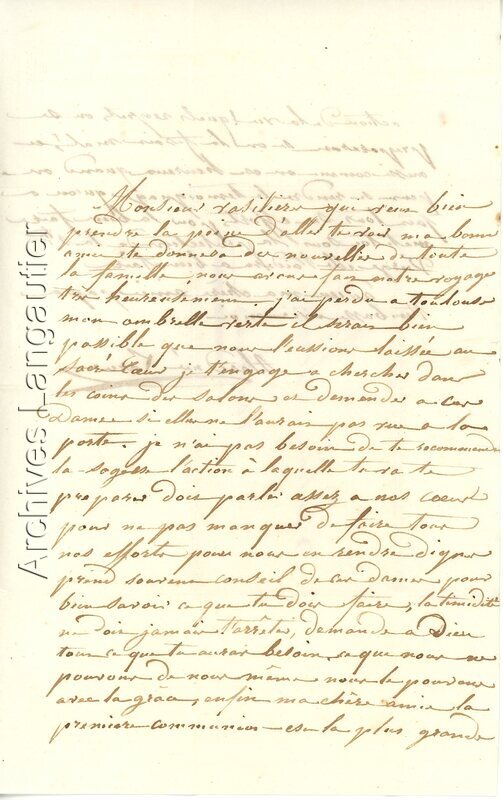 Monsieur ratiliere qui veux bien
prendre la peine d'aller te voir ma bonne
amie te donnera des nouvelles de toute
la famille nous avons fait notre voyage
tres heureusement j'ai perdu a toulouse
mon ombrelle verte il serait bien
possible que nous l'eussions laissée au
sacré Cœur je t'engage a chercher dans
les cours des salons et demander a ces
Dames si elles ne l'aurait pas vue a la
porte. je n'ai pas besoin de te recommender
la sagesse l'action à laquelle tu va te
preparer dois parler assez a nos cœurs
pour ne pas manquer de faire tous
nos efforts pour nous en rendre digne
prend souvent conseil de ces dames pour
bien savoir ce que tu dois faire, la timidité
ne dois jamais t'arrêter, demande a Dieu
tout ce que tu auras besoin, ce que nous ne
pouvons de nous même nous le pouvons
avec la grâce, enfin ma chère amie la
premiere communion est la plus grande
Archives Langautier